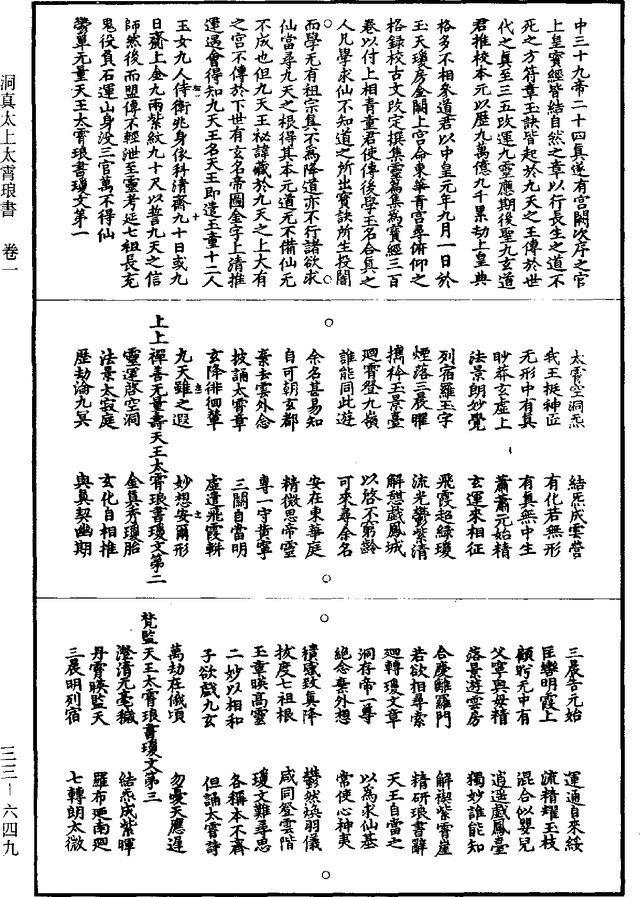 洞真太上太霄琅書　卷一
中三十九帝二十四真遂有宮闕次序之官
上皇寶經皆結自然之章以行長生之道不
死之方符章玉訣皆起於九天之王傳於世
代之真至三五改運九靈應期後聖九玄道
君推校本元以歷九萬億九千累劫上皇典
格多不相參道君以中皇元年九月一日於
玉天瓊房金闕上宮命東華青宮尋俯仰之
格錄校古文改定撰集靈篇集為寶經三百
卷以付上相青童君使傳後學玉名合真之
人凡學求仙不知道之所出寶訣所生投闇
而學无有祖宗真不為降道亦不行諸欲求
仙當尋九天之根得其本元道无不備仙无
不成也但九天王祕諱藏於九天之上大有
之宮不傳於下世有玄名帝圖金字上清推
運遇會得知九天王名天王即遣玉童十二人
玉女九人侍衛兆身依科清齋九十日或九
日齋上金九兩紫紋九十尺以誓九天之信
師然後而盟傳不輕泄至靈考延七祖長充
鬼役負石運山身没三官萬不得仙
鬱單无量天王太霄琅書瓊文第一
太霄空洞炁　結炁成雲營
我王挺神匠　有化若無形
无形中有真　有真無中生
眇莽玄虛上　蕭蕭元始精
法景朗妙覺　玄運來相征
列宿羅玉字　飛霞起綠瓊
煙落三晨曜　流光鬱紫清
擕衿玉景臺　解憇戲鳳城
迴霄登九嶺　以啓不窮齡
誰能同此遊　可來尋余名
余名甚易知　安在東華庭
自可朝玄都　精微思帝靈
棄去雲外念　專一守黃寧
披誦太霄章　三關自當明
玄降徘徊輦　虛遣飛霞軿
九天雖之遐　妙想安爾形
上上禪善无量壽天王太霄琅書瓊文第二
靈運啓空洞　金真秀瓊胎
法景太寂庭　玄化自相推
歷劫淪九冥　與真契幽期
三晨苦元始　運通自來綏
匡鸞明霞上　流精耀玉枝
顧眄无中有　混合似嬰兒
父寧與母精　逍遥戲鳳臺
落景遊雲房　獨妙誰能知
合慶離羅門　解禊紫霄崖
若欲相尋索　精研琅書辭
迴轉瓊文章　天王自當之
洞存帝一尊　以為求仙基
絕念棄外想　常使心神夷
積感致真降　鬱然煥羽儀
拔度七祖根　咸同登雲階
玉童暎高靈　瓊文難尋思
二妙以相和　各稱本不齊
子欲戲九玄　但誦太霄詩
萬劫在俄頃　勿憂天應遲
梵監天王太霄琅書瓊文第三
澄清无毫穢　結炁成紫暉
丹霄暎監天　羅布迤南迴
三晨明列宿　七轉朗太微
三三—六四九